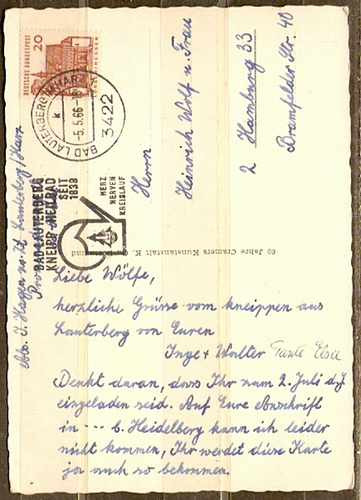 DEUTSCHE BUNDESPOST
20
BAD LAUTERBERG IM HARZ
k
-5.5.66-18
3422
BAD LAUTERBERG
KNEIPP-HEILBAD
SEIT
1839
HERZ
NERVEN
KREISLAUF
Herrn
Heinrich Wolf u. Frau
2 Hamburg 33
Bramfelder Str. 40
60 Jahre Cramers Kunstanstalt K
Lauterberg/Harz
Liebe Wölfe,
herzliche Grüsse vom kneippen aus
Lauterberg von Euren
Inge + Walter Tante Elsie
Denkt daran, dass Ihr zum 2. Juli d.J.
eingeladen seid. Auf Eure Anschrift
in --- b. Heidelberg kann ich leider
nicht kommen, Ihr werdet diese Karte
ja auch so bekommen.